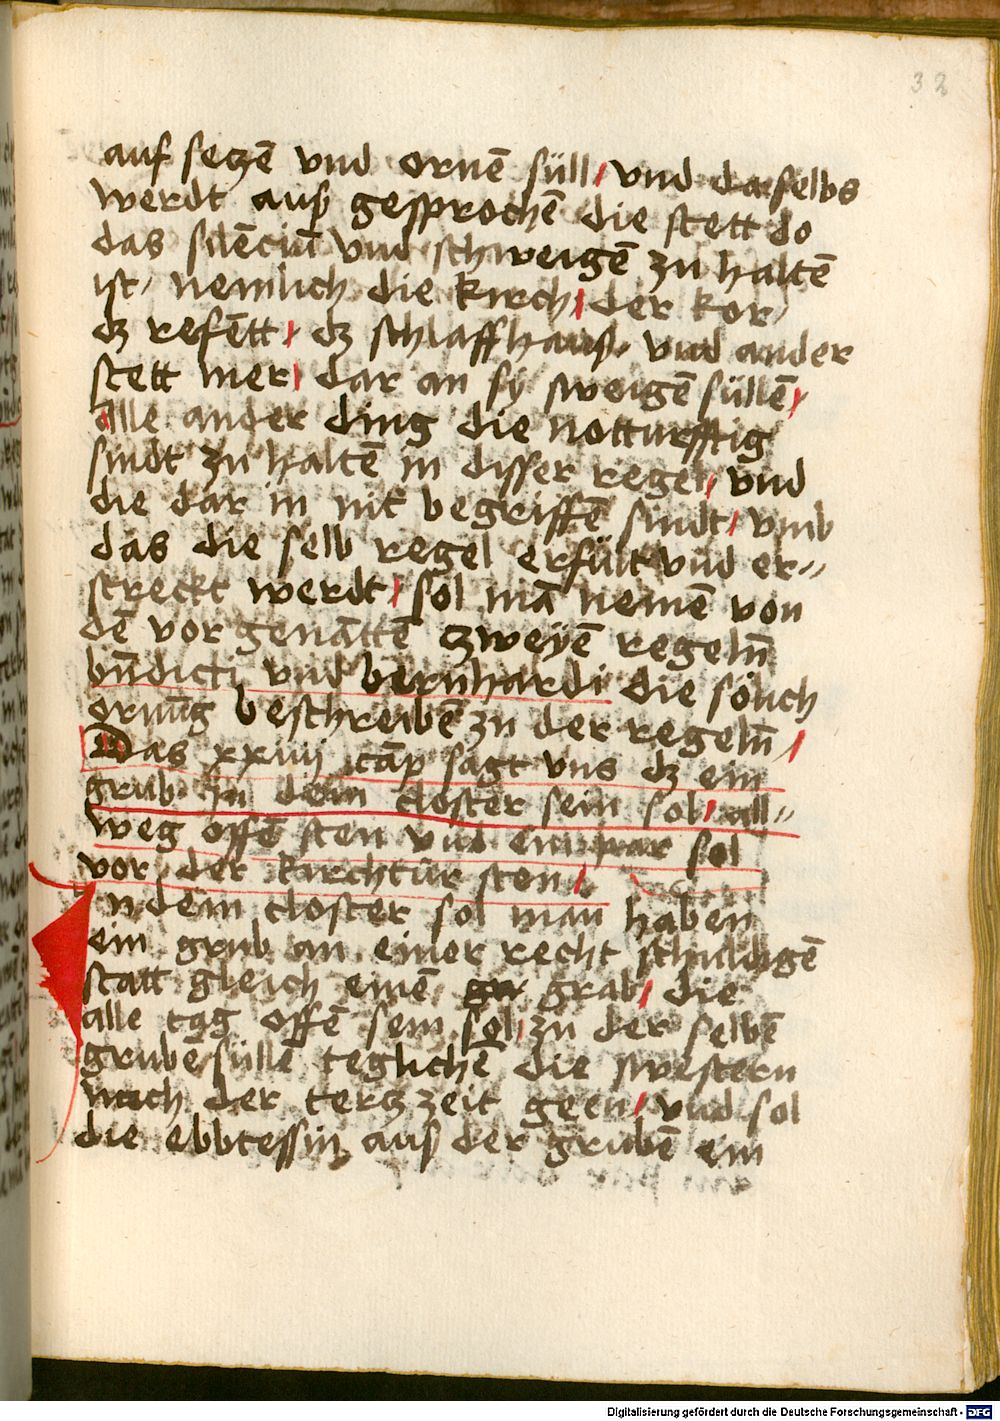 32
auf seczē vnd ornē süll / vnd da selbs
werdt auß gesprochē die stett do
das silēciū vnd schweigē zu haltē
ist / nemlich die kirch / der kor /
dz refētt / dz schlaffhauß / vnd ander
stett mer / dar an sy sweigē süllē /
alle ander ding die notturfftig
sindt zu haltē in disser regel / vnd
die dar in nit begriffē sindt / vmb
das die selb regel erfült vnd er=
streckt werdt / sol mā nemē von
dē vor genāttē zweyē regeln̄
bn̄dicti vnd bernhardi die sölich
ornūg beschreibē zu der regeln̄ /
Das xxiiij cāp sagt vns dz ein
grub in dem closter sein sol / all=
weg offē sten vnd ein par sol
vor der kirchtür sten /
n dem closter sol man haben
ein grub an einer recht schuldigē
statt gleich einē grab / die
alle tag offē sein sol / zu der selbē
grubē süllē teglichē die swestern
nach der tercz zeit geen / vnd sol
die ebbtessin auß der grubē ein
Digitalisierung gefördert durch die Deutsche Forschungsgemeinschaft - DFG